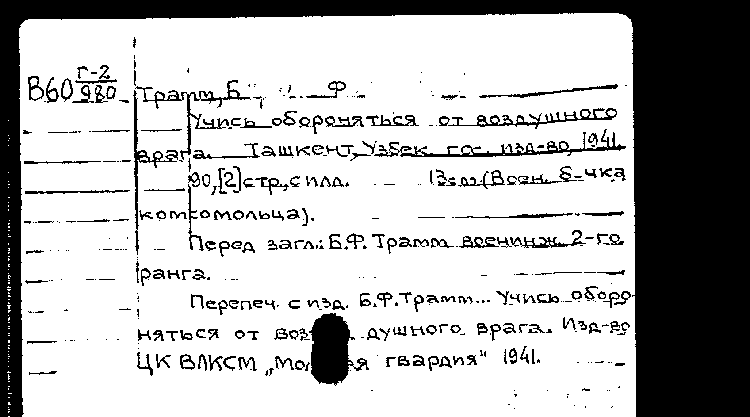 В60 Г-2/980
Трамм, Б. Ф.
Учись обороняться от воздушного
врага. Ташкент, Узбек. гос. изд-во, 1941.
90,[2] стр., с илл. 13 см. (Воен. б-чка
комсомольца).
Перед загл.: Б.Ф. Трамм военинж. 2-го
ранга.
Перепеч. с изд. Б.Ф. Трамм... Учись оборо-
няться от воздушного врага. Изд-во
ЦК ВЛКСМ „Молодая гвардия" 1941.